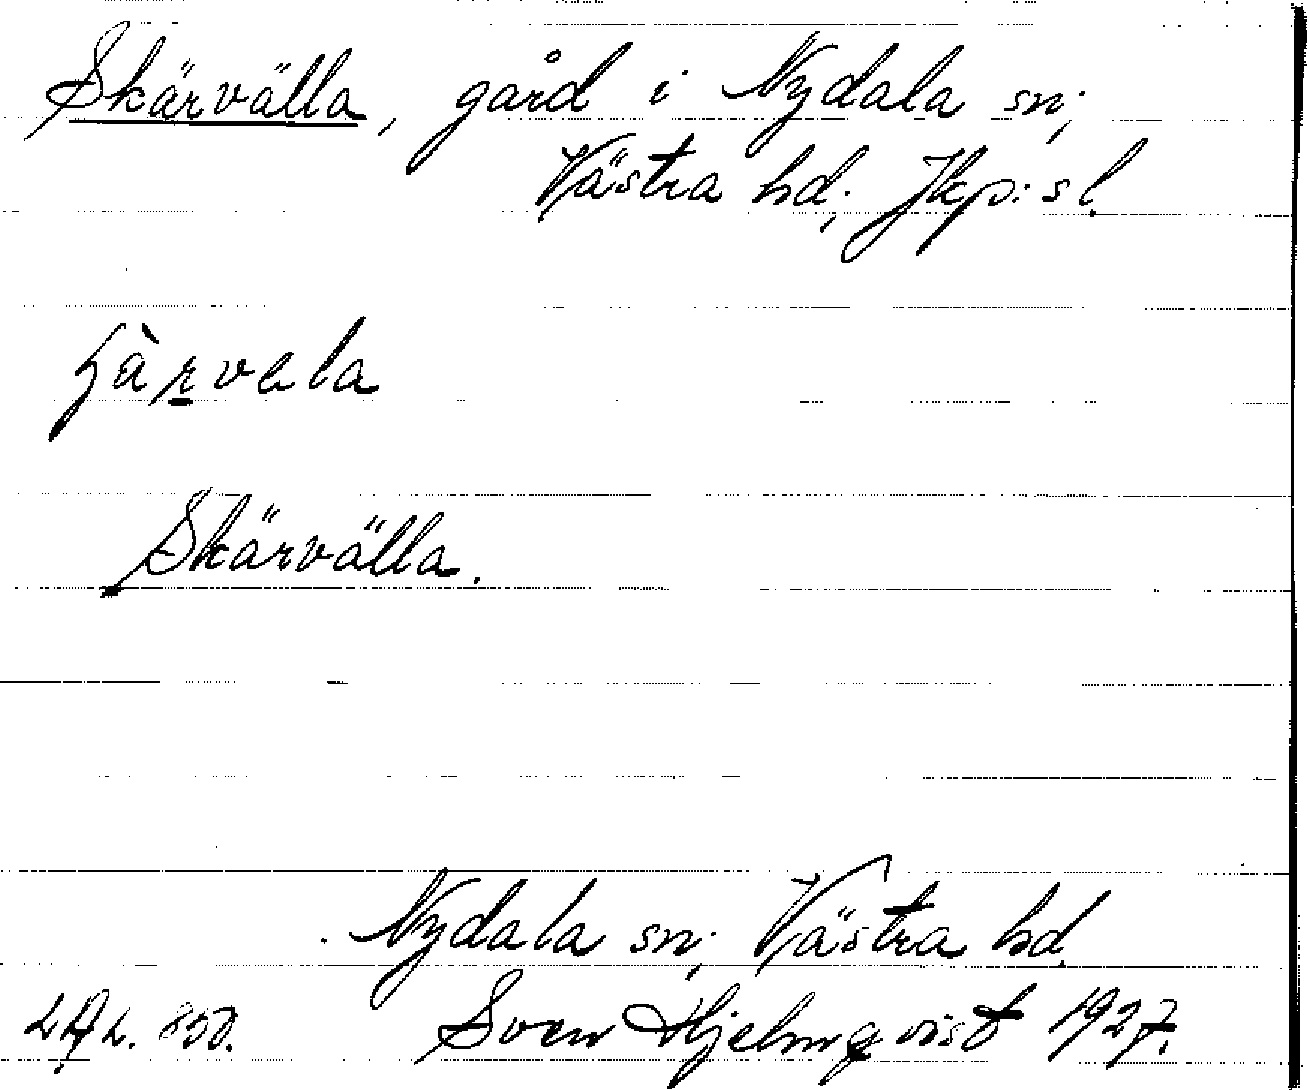 Skärvälla, gård i Nydala sn;
Västra hd; Jkp:s l.
Skärvälla.
Nydala sn; Västra hd.
LAL. 850. Sven Hjelmqvist 1927.